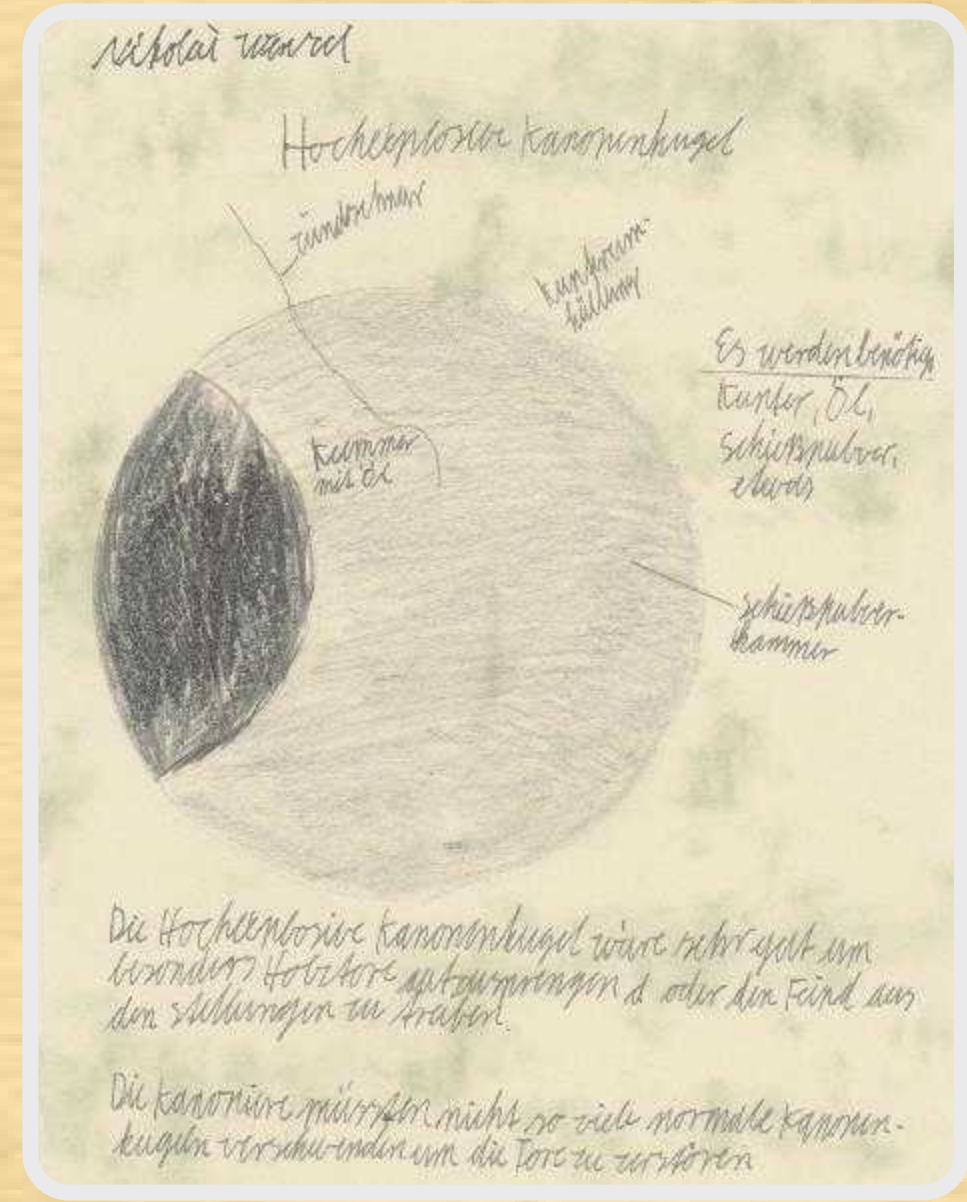 Nikolai
Hochexplosive Kanonenkugel
Zündschnur
Kupferum-
hüllung
Es werden benötigt
Kupfer, Öl,
Schießpulver,
etwas
Kammer
mit Öl
Schießpulver-
kammer
Die Hochexplosive Kanonenkugel wäre sehr gut um
besonders aufzusprengen oder den Feind aus
den stellungen zu treiben.
Die Kanoniere müssten nicht so viele normale Kanonen-
kugeln verschwenden um die Tore zu zerstören